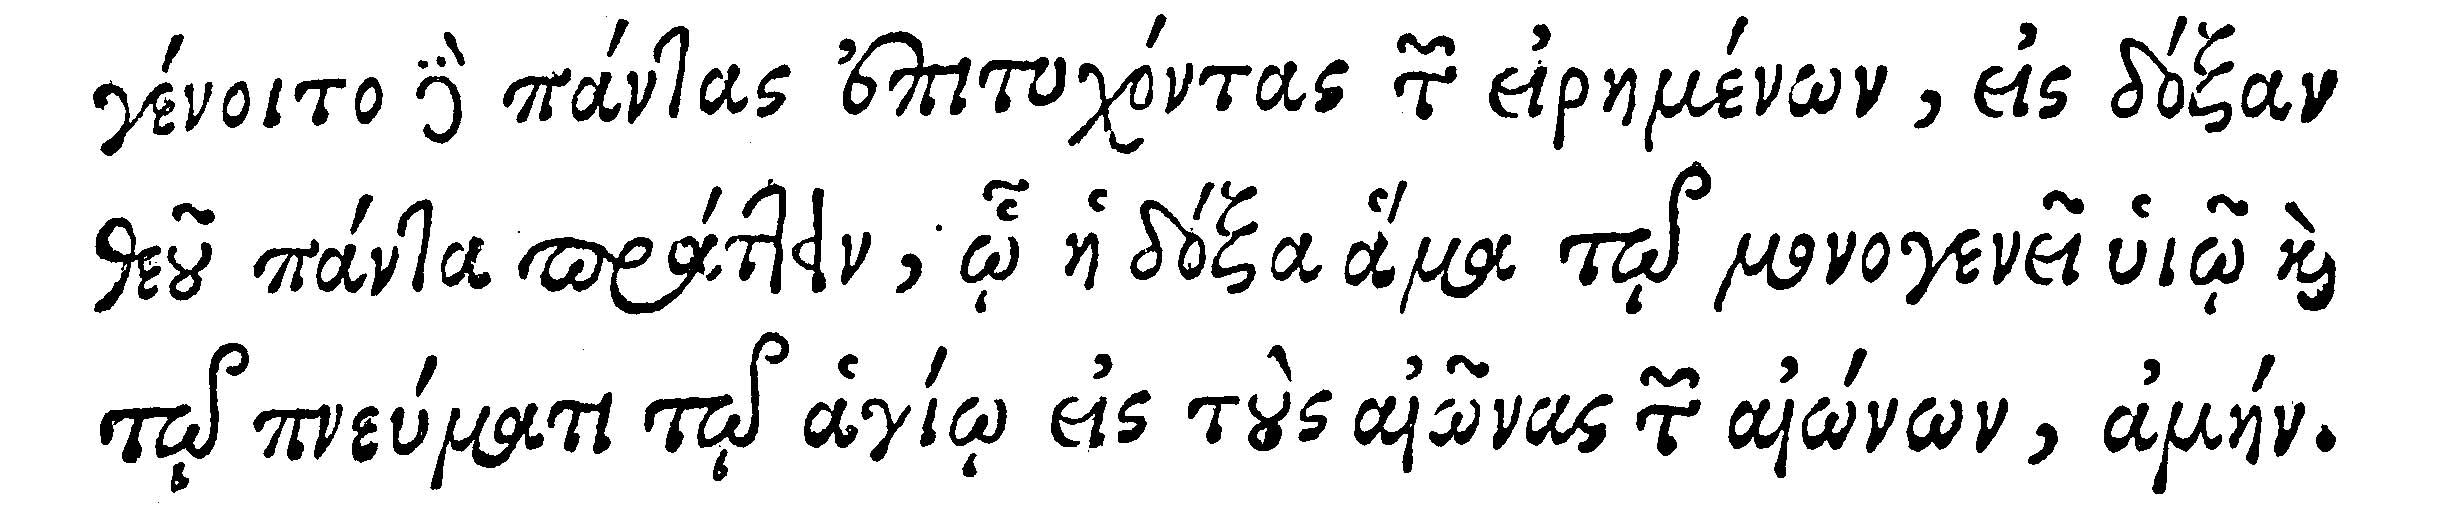 γένοιτο δὲ πάντας ἐπιτυχόντας τῶν εἰρημένων, εἰς δόξαν
θεοῦ πάντα πράττειν, ᾧ ἡ δόξα ἅμα τῷ μονογενεῖ υἱῷ καὶ
τῷ πνεύματι τῷ ἁγίῳ εἰς τοὺς αἰῶνας τῶν αἰώνων, ἀμήν.